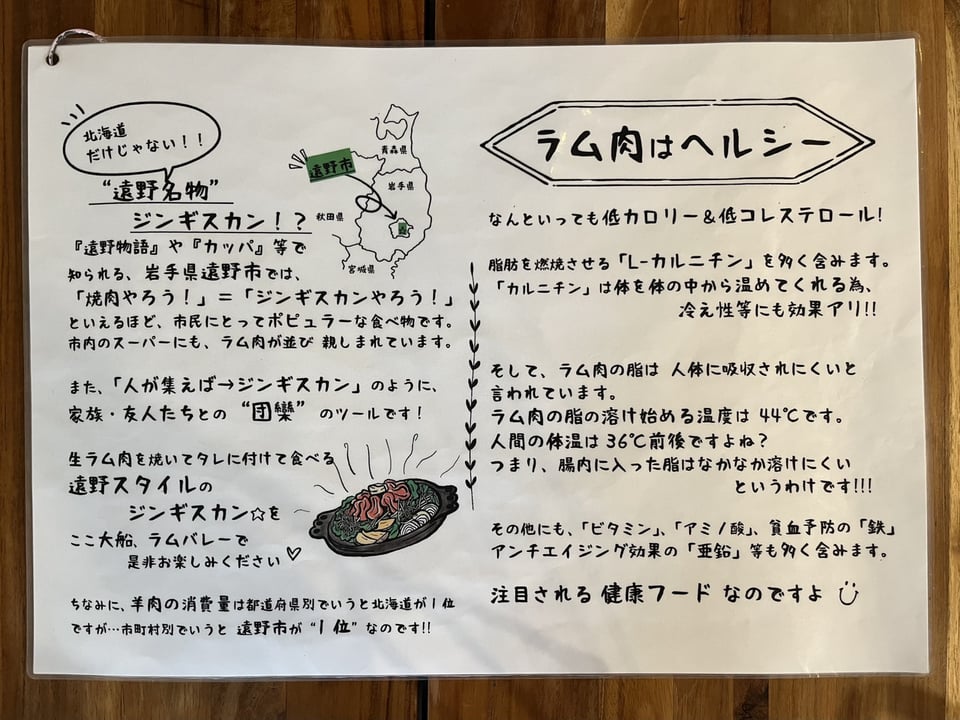 北海道
だけじゃない！！
“遠野名物”
ジンギスカン！？
『遠野物語』や『カッパ』等で
知られる、岩手県遠野市では、
「焼肉やろう！」＝「ジンギスカンやろう！」
といえるほど、市民にとってポピュラーな食べ物です。
市内のスーパーにも、ラム肉が並び 親しまれています。
また、「人が集えば→ジンギスカン」のように、
家族・友人たちとの “団欒” のツールです！
生ラム肉を焼いてタレに付けて食べる
遠野スタイルの
ジンギスカン☆を
ここ大船、ラムバレーで
是非お楽しみください♡
ちなみに、羊肉の消費量は都道府県別でいうと北海道が1位
ですが…市町村別でいうと 遠野市が “1位” なのです!!
青森県
遠野市
岩手県
秋田県
宮城県
ラム肉はヘルシー
なんといっても低カロリー＆低コレステロール！
脂肪を燃焼させる「L-カルニチン」を多く含みます。
「カルニチン」は体を体の中から温めてくれる為、
冷え性等にも効果アリ!!
そして、ラム肉の脂は 人体に吸収されにくいと
言われています。
ラム肉の脂の溶け始める温度は 44℃です。
人間の体温は 36℃前後ですよね？
つまり、腸内に入った脂はなかなか溶けにくい
というわけです!!!
その他にも、「ビタミン」、「アミノ酸」、貧血予防の「鉄」
アンチエイジング効果の「亜鉛」等も多く含みます。
注目される 健康フード なのですよ